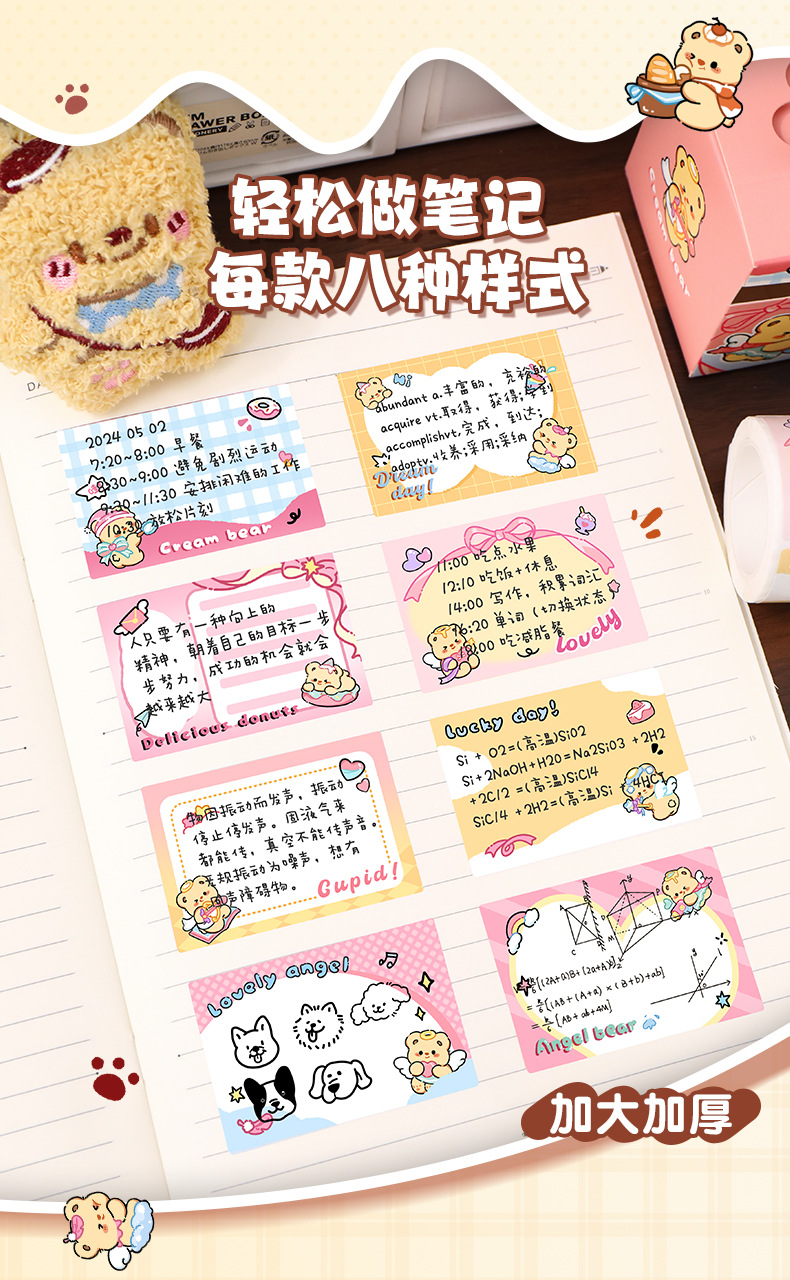 AWER BO
轻松做笔记
每款八种样式
2024 05 02
7:20~8:00 早餐
8:30~9:00 避免剧烈运动
9:30~11:30 安排困难的工作
放松片刻
Cream bear
Hi
abundant a.丰富的，充裕的
acquire vt.取得，获得;学到
accomplishvt.完成，到达;
adoptv.收养;采用;采纳
Dream
day!
人只要有一种向上的
精神，朝着自己的目标一步
步努力，成功的机会就会
越来越大
Delicious donuts
11:00 吃点水果
12:10 吃饭+休息
14:00 写作，积累词汇
16:20 单词（切换状态）
18:00 吃减脂餐
lovely
物因振动而发声，振动
停止停发声。固液气来
都能传，真空不能传声音。
规振动为噪声，想有
声障碍物。
Cupid!
Lucky day!
Si + O2=(高温)SiO2
Si+2NaOH+H2O=Na2SiO3 +2H2
+2C/2 =(高温)SiCl4
SiCl4 +2H2=(高温)Si +4HCl
Lovely angel
Angel bear
加大加厚